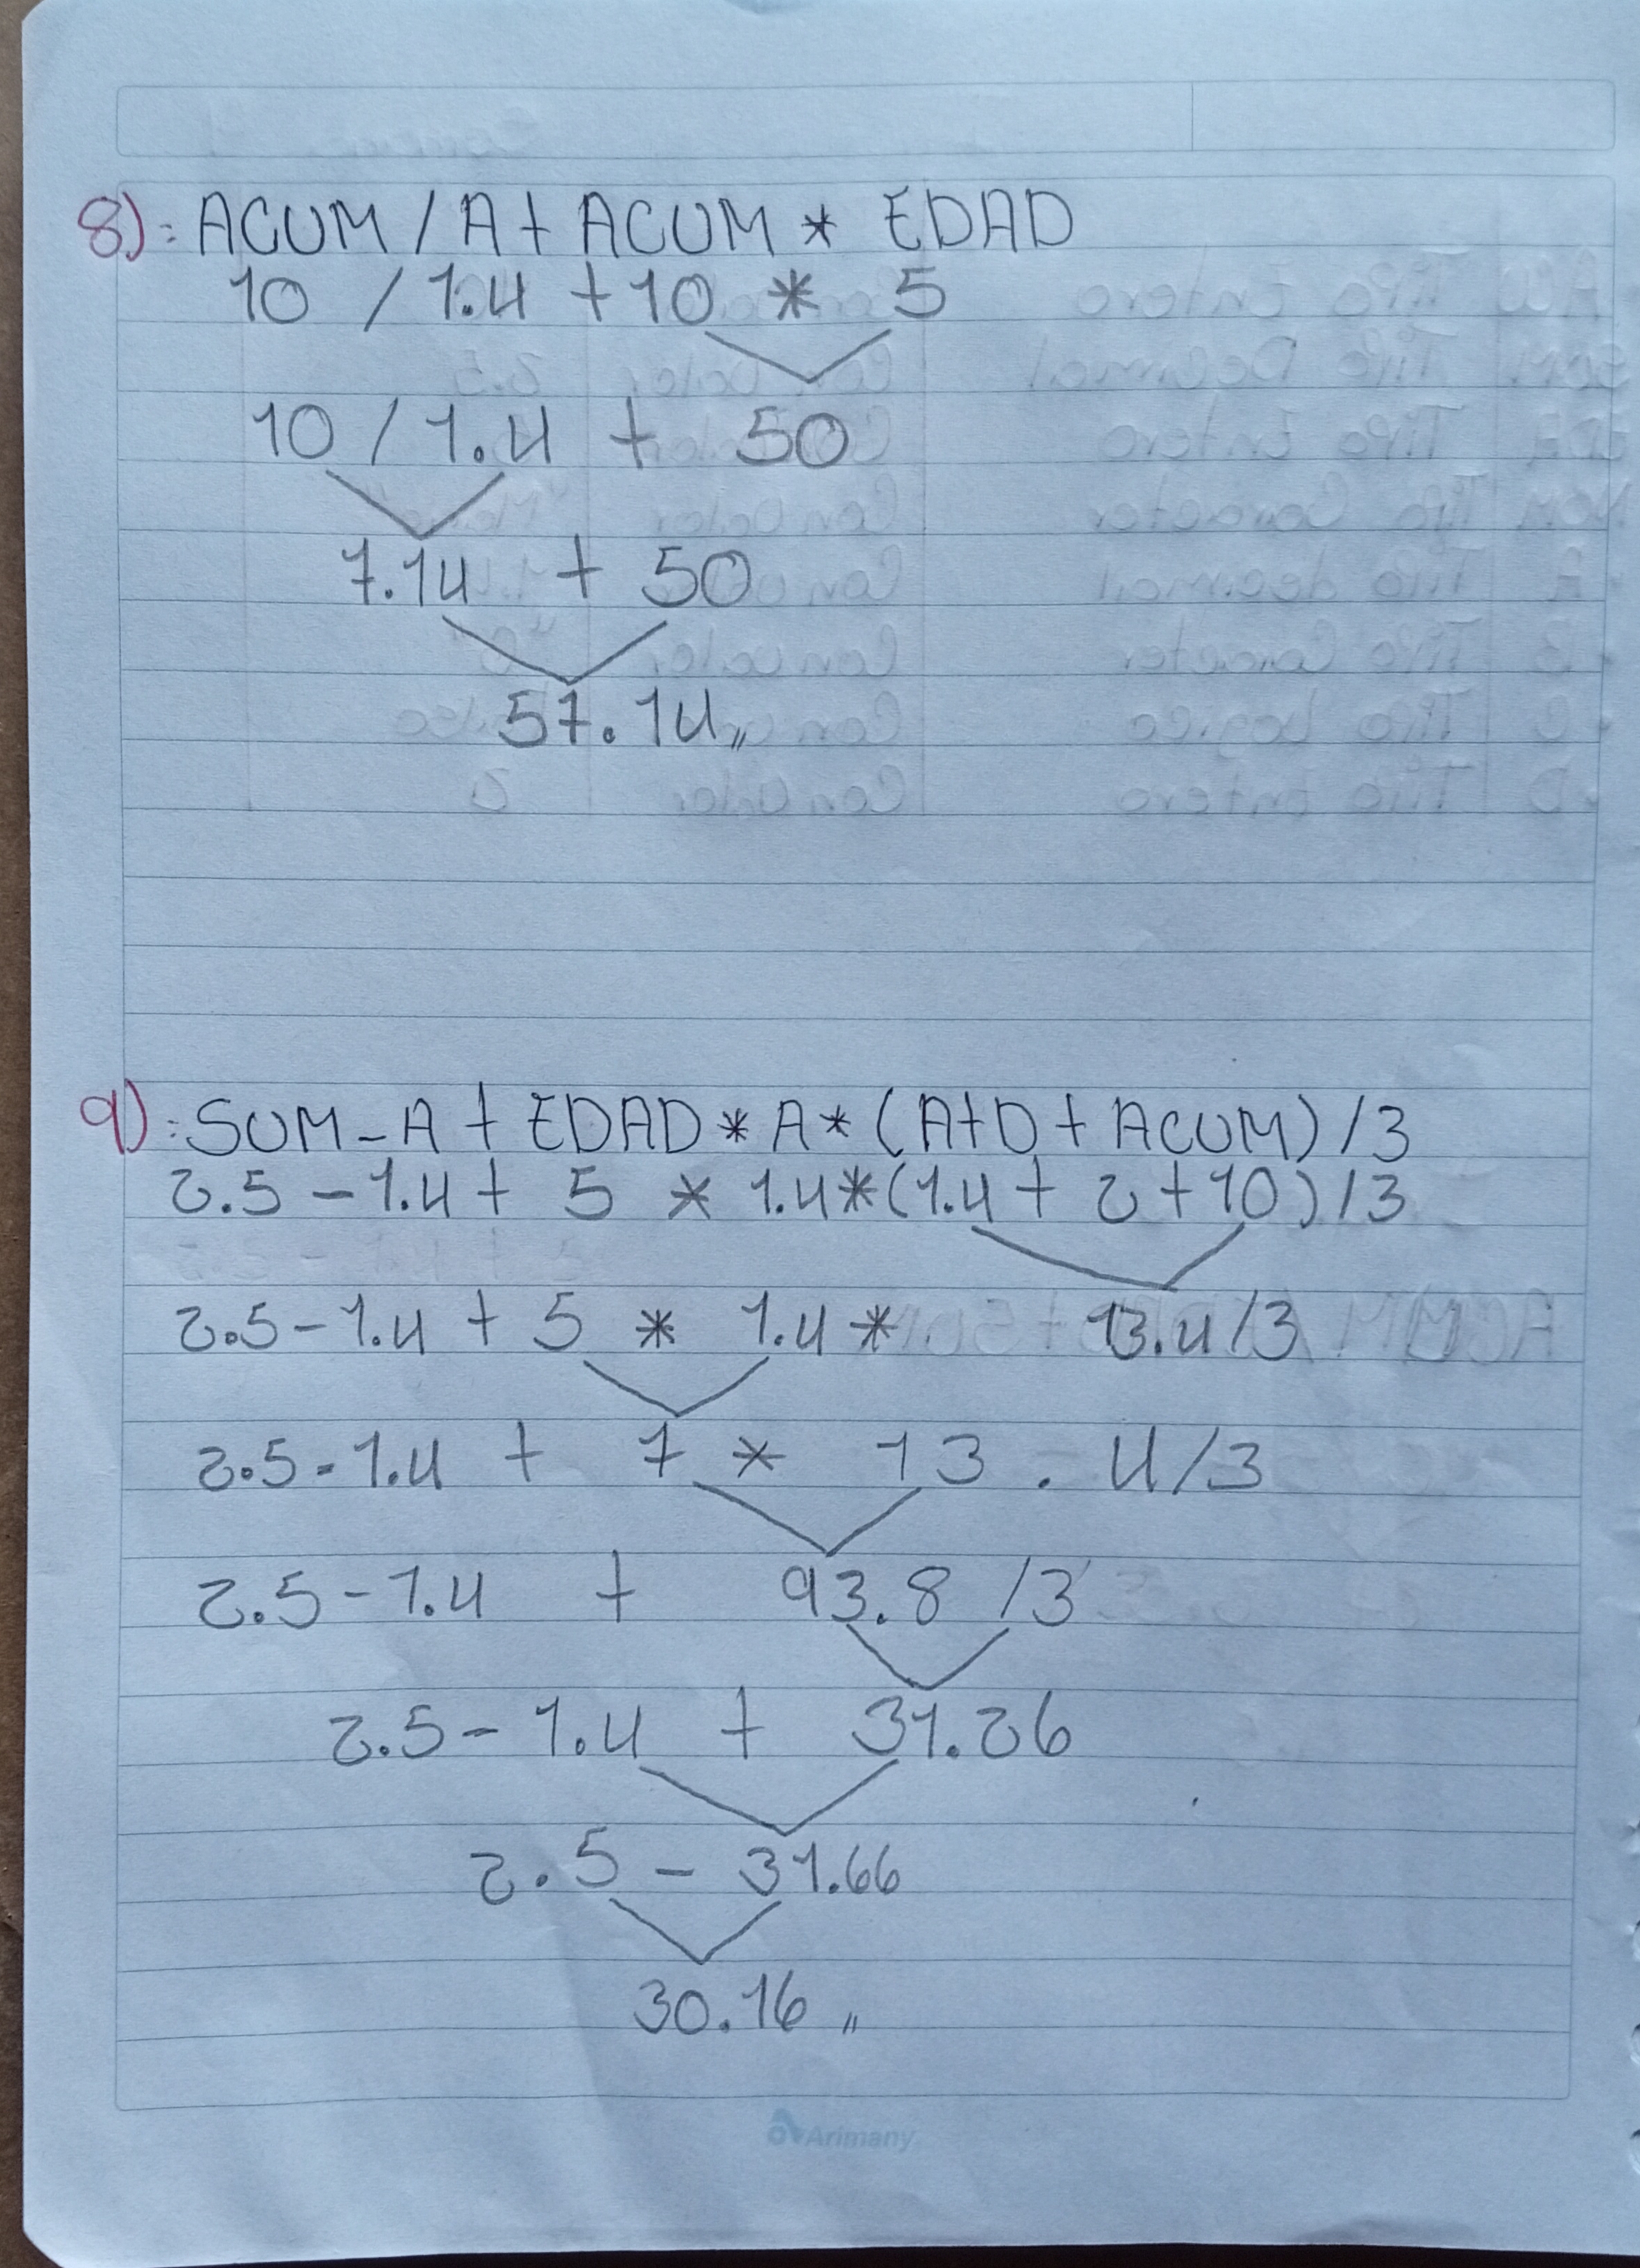 8): ACUM / A + ACUM * EDAD
10 / 1.4 + 10 * 5
10 / 1.4 + 50
7.14 + 50
57.14,,
9): SUM - A + EDAD * A * (A + D + ACUM) / 3
2.5 - 1.4 + 5 * 1.4 * (1.4 + 2 + 10) / 3
2.5 - 1.4 + 5 * 1.4 * 13.4 / 3
2.5 - 1.4 + 7 * 13.4 / 3
2.5 - 1.4 + 93.8 / 3
2.5 - 1.4 + 31.26
2.5 - 31.66
30.16,,
Arimany